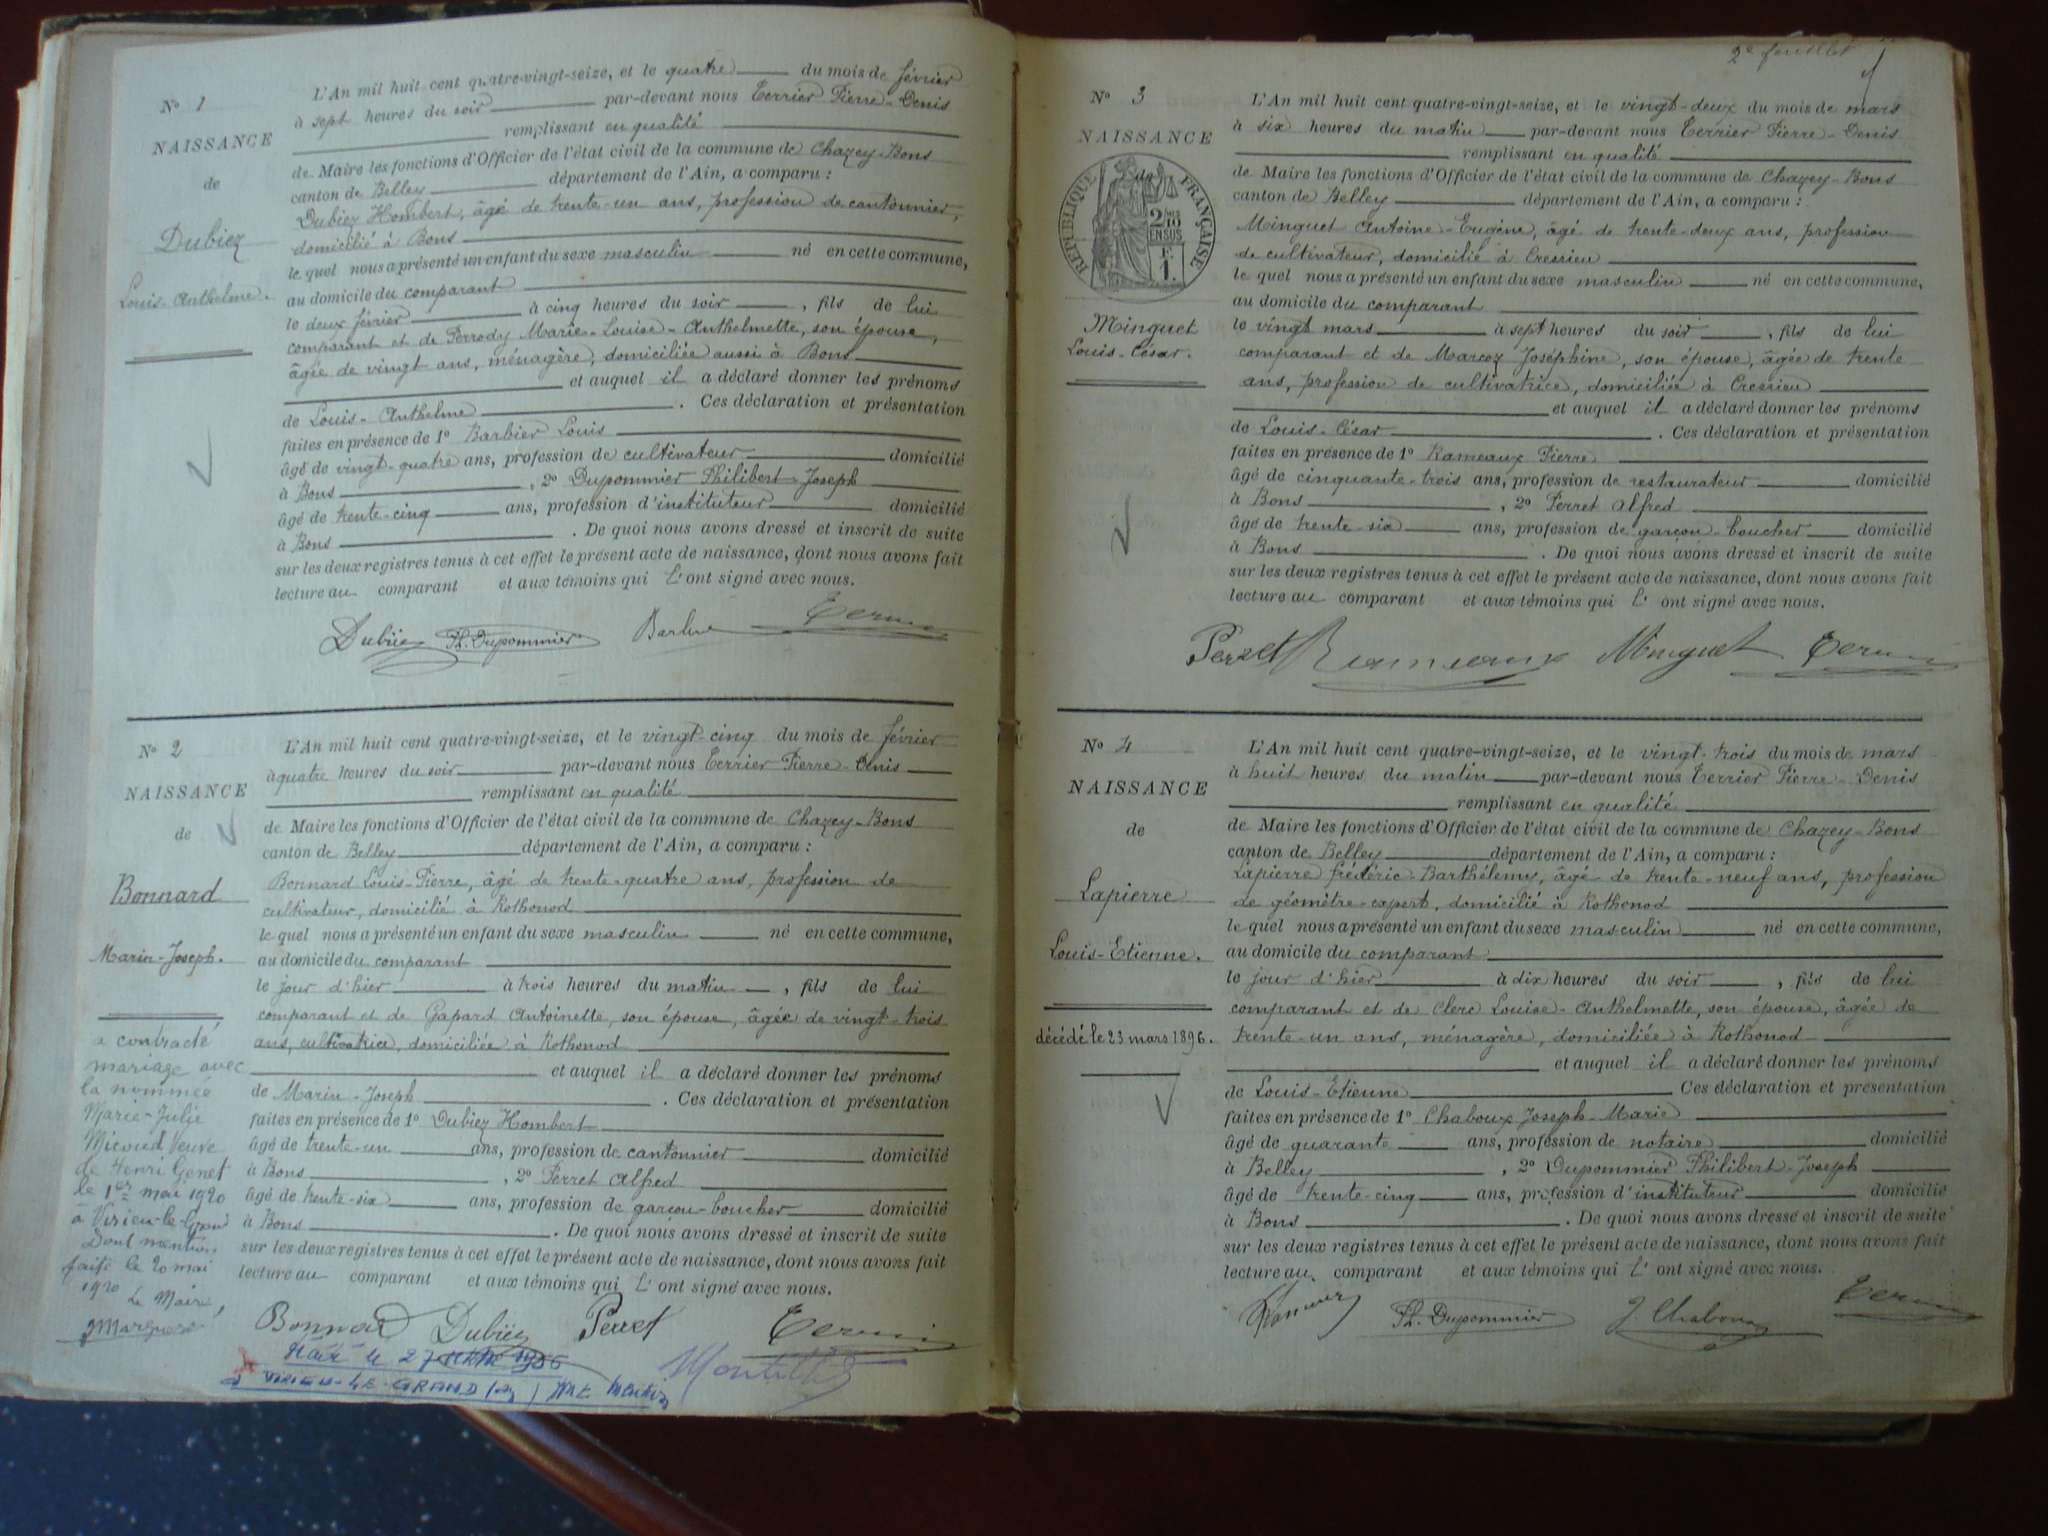 N° 1
NAISSANCE
de
Dubiez
Louis-Anthelme.
L'An mil huit cent quatre-vingt-seize, et le quatre du mois de février
à sept heures du soir par-devant nous Terrier Pierre-Denis
remplissant en qualité
de Maire les fonctions d'Officier de l'état civil de la commune de Chazey-Bons
canton de Belley département de l'Ain, a comparu :
Dubiez Hombert, âgé de trente-un ans, profession de cantonnier,
domicilié à Bons
le quel nous a présenté un enfant du sexe masculin né en cette commune,
au domicile du comparant
le deux février à cinq heures du soir , fils de lui
comparant et de Perrody Marie-Louise-Anthelmette, son épouse,
âgée de vingt ans, ménagère, domiciliée aussi à Bons
et auquel il a déclaré donner les prénoms
de Louis-Anthelme . Ces déclaration et présentation
faites en présence de 1° Barbier Louis
âgé de vingt-quatre ans, profession de cultivateur domicilié
à Bons , 2° Dupommier Philibert-Joseph
âgé de trente-cinq ans, profession d'instituteur domicilié
à Bons . De quoi nous avons dressé et inscrit de suite
sur les deux registres tenus à cet effet le présent acte de naissance, dont nous avons fait
lecture au comparant et aux témoins qui l'ont signé avec nous.
Dubiez Ph. Dupommier Barbier Terrier
N° 2
NAISSANCE
de
Bonnard
Marin-Joseph.
a contracté
mariage avec
la nommée
Marie-Julie
Micoud Veuve
de Henri Genet
le 1er mai 1920
à Virieu-le-Grand
Dont mention
faite le 20 mai
1920
Le Maire,
L'An mil huit cent quatre-vingt-seize, et le vingt-cinq du mois de février
à quatre heures du soir par-devant nous Terrier Pierre-Denis
remplissant en qualité
de Maire les fonctions d'Officier de l'état civil de la commune de Chazey-Bons
canton de Belley département de l'Ain, a comparu :
Bonnard Louis-Pierre, âgé de trente-quatre ans, profession de
cultivateur, domicilié à Rothonod
le quel nous a présenté un enfant du sexe masculin né en cette commune,
au domicile du comparant
le jour d'hier à trois heures du matin , fils de lui
comparant et de Gapard Antoinette, son épouse, âgée de vingt-trois
ans, cultivatrice, domiciliée à Rothonod
et auquel il a déclaré donner les prénoms
de Marin-Joseph . Ces déclaration et présentation
faites en présence de 1° Dubiez Hombert
âgé de trente-un ans, profession de cantonnier domicilié
à Bons , 2° Perret Alfred
âgé de trente-six ans, profession de garçon-boucher domicilié
à Bons . De quoi nous avons dressé et inscrit de suite
sur les deux registres tenus à cet effet le présent acte de naissance, dont nous avons fait
lecture au comparant et aux témoins qui l'ont signé avec nous.
Bonnard Dubiez Perret Terrier
le 27
VIRIEU-LE-GRAND
2e feuillet
N° 3
NAISSANCE
de
RÉPUBLIQUE FRANÇAISE
2/10
EN SUS
F.
1.
Minguet
Louis-César.
L'An mil huit cent quatre-vingt-seize, et le vingt-deux du mois de mars
à six heures du matin par-devant nous Terrier Pierre-Denis
remplissant en qualité
de Maire les fonctions d'Officier de l'état civil de la commune de Chazey-Bons
canton de Belley département de l'Ain, a comparu :
Minguet Antoine-Eugène, âgé de trente-deux ans, profession
de cultivateur, domicilié à Cressieu
le quel nous a présenté un enfant du sexe masculin né en cette commune,
au domicile du comparant
le vingt mars à sept heures du soir , fils de lui
comparant et de Marcoz Joséphine, son épouse, âgée de trente
ans, profession de cultivatrice, domiciliée à Cressieu
et auquel il a déclaré donner les prénoms
de Louis-César . Ces déclaration et présentation
faites en présence de 1° Rameaux Pierre
âgé de cinquante-trois ans, profession de restaurateur domicilié
à Bons , 2° Perret Alfred
âgé de trente-six ans, profession de garçon-boucher domicilié
à Bons . De quoi nous avons dressé et inscrit de suite
sur les deux registres tenus à cet effet le présent acte de naissance, dont nous avons fait
lecture au comparant et aux témoins qui l'ont signé avec nous.
Perret Rameaux Minguet Terrier
N° 4
NAISSANCE
de
Lapierre
Louis-Etienne.
décédé le 23 mars 1896.
L'An mil huit cent quatre-vingt-seize, et le vingt-trois du mois de mars
à huit heures du matin par-devant nous Terrier Pierre-Denis
remplissant en qualité
de Maire les fonctions d'Officier de l'état civil de la commune de Chazey-Bons
canton de Belley département de l'Ain, a comparu :
Lapierre Frédéric-Barthélemy, âgé de trente-neuf ans, profession
de géomètre-expert, domicilié à Rothonod
le quel nous a présenté un enfant du sexe masculin né en cette commune,
au domicile du comparant
le jour d'hier à dix heures du soir , fils de lui
comparant et de Clerc Louise-Anthelmette, son épouse, âgée de
trente-un ans, ménagère, domiciliée à Rothonod
et auquel il a déclaré donner les prénoms
de Louis-Etienne Ces déclaration et présentation
faites en présence de 1° Chaboux Joseph-Marie
âgé de quarante ans, profession de notaire domicilié
à Belley , 2° Dupommier Philibert-Joseph
âgé de trente-cinq ans, profession d'instituteur domicilié
à Bons . De quoi nous avons dressé et inscrit de suite
sur les deux registres tenus à cet effet le présent acte de naissance, dont nous avons fait
lecture au comparant et aux témoins qui l'ont signé avec nous.
Ph. Dupommier J. Chaboux Terrier